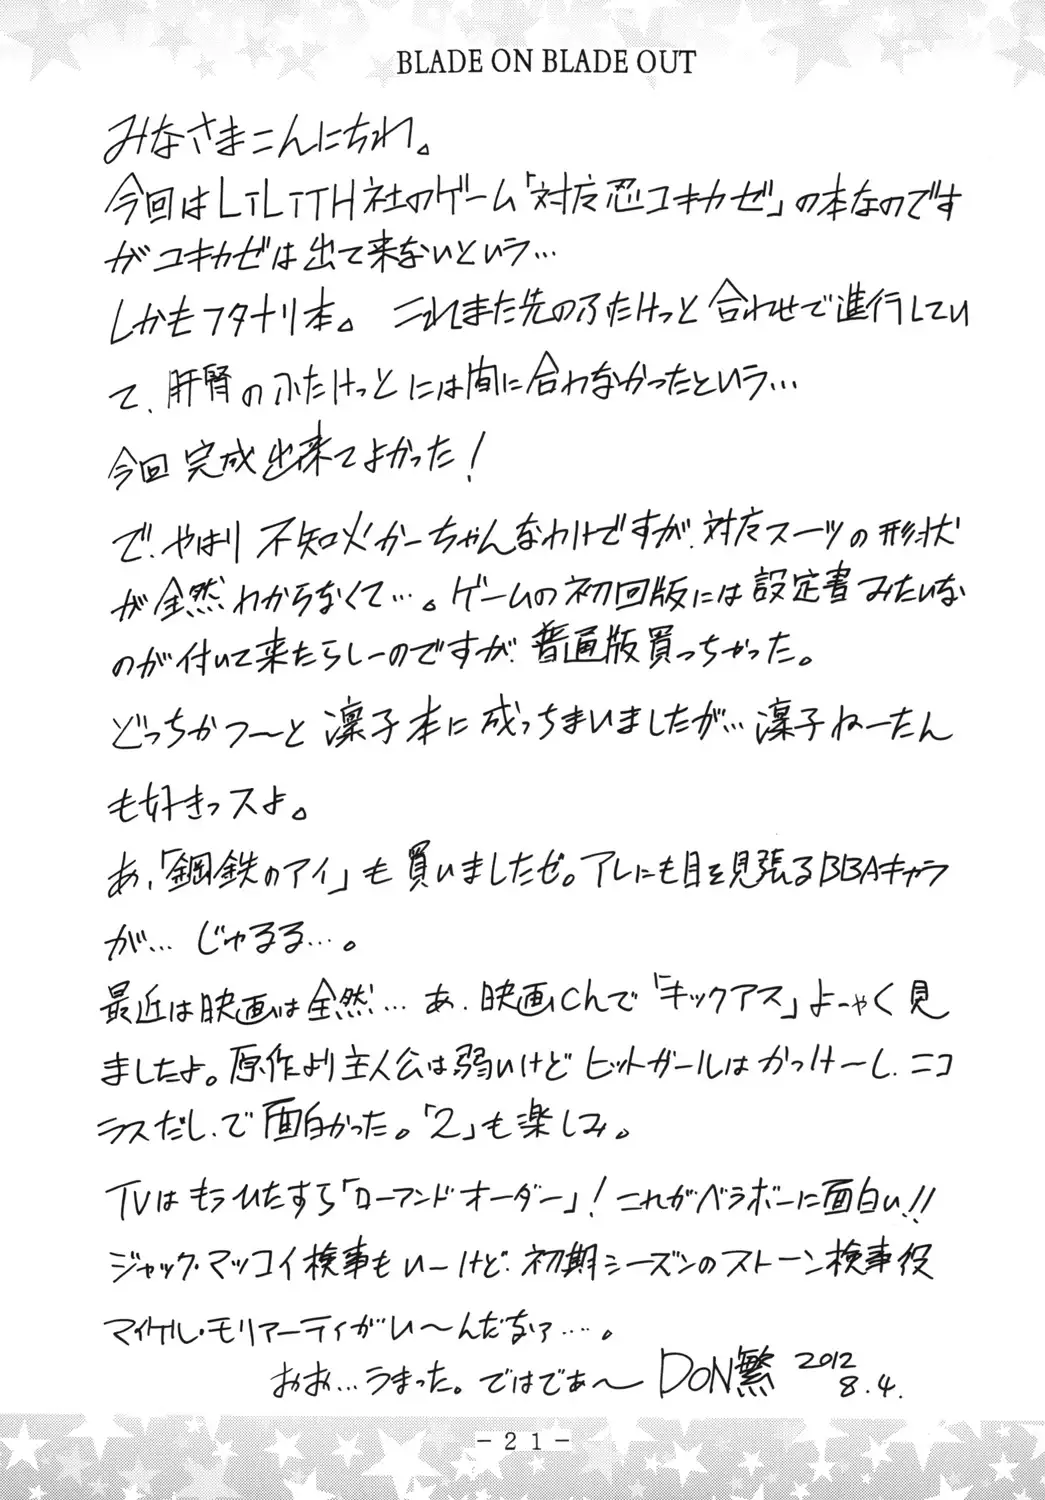 BLADE ON BLADE OUT
みなさまこんにちわ。
今回はLiLiTH社のゲーム「対方忍ユキカゼ」の本なのです
がユキカゼは出て来ないという…
しかもフタナリ本。 これまた先のふたけっと合わせで進行してい
て、肝腎のふたけっとには間に合わなかったという…
今回完成出来てよかった!
で、やはり不知火かーちゃんなわけですが、対方スーツの形状
が全然わからなくて…。ゲームの初回版には設定書みたいな
のが付いて来たらしーのですが、普通版買っちゃった。
どっちかつ〜と凛子本に成っちまいましたが…凛子ねーたん
も好きっスよ。
あ、「鋼鉄のアイ」も買いましたぜ。アレにも目を見張るBBAキャラ
が… じゅるる…。
最近は映画は全然… あ、映画Chで「キックアス」よーやく見
ましたよ。原作より主人公は弱いけどヒットガールはかっけーし、ニコ
ラスだし、で面白かった。「2」も楽しみ。
TVはもうひたすら「ローアンドオーダー」! これがベラボーに面白い!!
ジャック・マッコイ検事もいーけど、初期シーズンのストーン検事役
マイケル・モリアーティがい〜んだなァ…。
おお…うまった。ではでぁ〜 DON繁 2012
8.4.
-21-